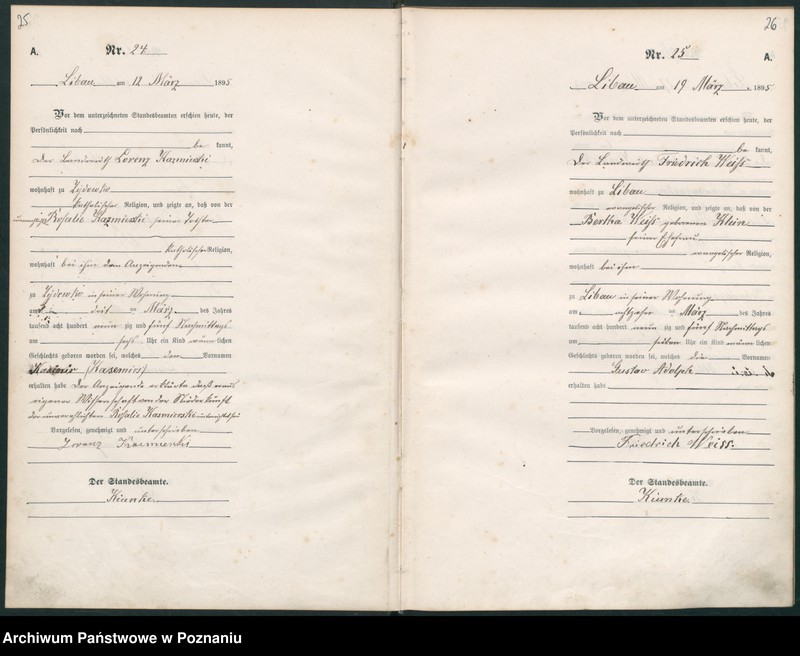 25
A.
Nr. 24
Libau am 12 März 1895
Vor dem unterzeichneten Standesbeamten erschien heute, der
Persönlichkeit nach
be kannt,
der Landwirth Lorenz Kazmierski
wohnhaft zu Zydowko
katholischer Religion, und zeigte an, daß von der
Rosalie Kazmierski seiner Tochter
katholischer Religion,
wohnhaft bei ihm dem Anzeigenden
zu Zydowko in seiner Wohnung
am drei März des Jahres
tausend acht hundert neun zig und fünf Nachmittags
um sechs Uhr ein Kind männlichen
Geschlechts geboren worden sei, welches den Vornamen
Kasimir (Kasemirs)
erhalten habe Der Anzeigende erklärte daß er aus
eigener Wissenschaft von der Niederkunft
der unverehelichten Rosalie Kasmierski unterrichtet sei
Vorgelesen, genehmigt und unterschrieben
Lorenz Kazmierski
Der Standesbeamte.
26
Nr. 25
A.
Libau am 19 März 1895
Vor dem unterzeichneten Standesbeamten erschien heute, der
Persönlichkeit nach
be kannt,
der Landwirth Friedrich Weiß
wohnhaft zu Libau
evangelischer Religion, und zeigte an, daß von der
Bertha Weiß geborenen Klein
seiner Ehefrau
evangelischer Religion,
wohnhaft bei ihm
zu Libau in seiner Wohnung
am achtzehn März des Jahres
tausend acht hundert neun zig und fünf Nachmittags
um sieben Uhr ein Kind männlichen
Geschlechts geboren worden sei, welches die Vornamen
Gustav Adolph
erhalten habe
Vorgelesen, genehmigt und unterschrieben
Friedrich Weiss.
Der Standesbeamte.
Archiwum Państwowe w Poznaniu